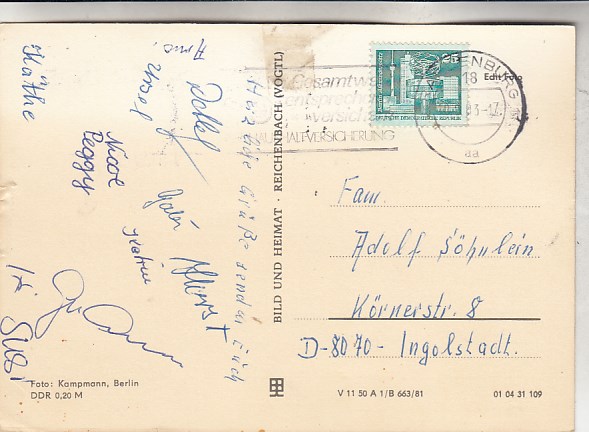 Herzliche Grüße sendet Euch
Käthe
Arno,
Ursel
Detlef
Nicole
Peggy
Gabi
Horst
Susi
BILD UND HEIMAT · REICHENBACH (VOGTL)
Gesamtwe
entspreche
versich
HALTVERSICHERUNG
25
DEUTSCHE DEMOKRATISCHE REPUBLIK
ENBURG
18
aa
Edit Foto
Fam.
Adolf Söhnlein
Körnerstr. 8
D-8070- Ingolstadt.
Foto: Kampmann, Berlin
DDR 0,20 M
V 11 50 A 1/B 663/81
01 04 31 109